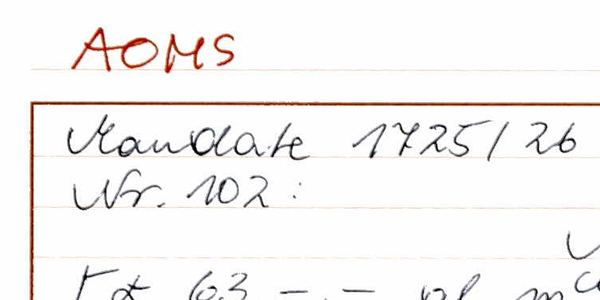 AOMS
Mandate 1725/26
Nr. 102:
63 -.-